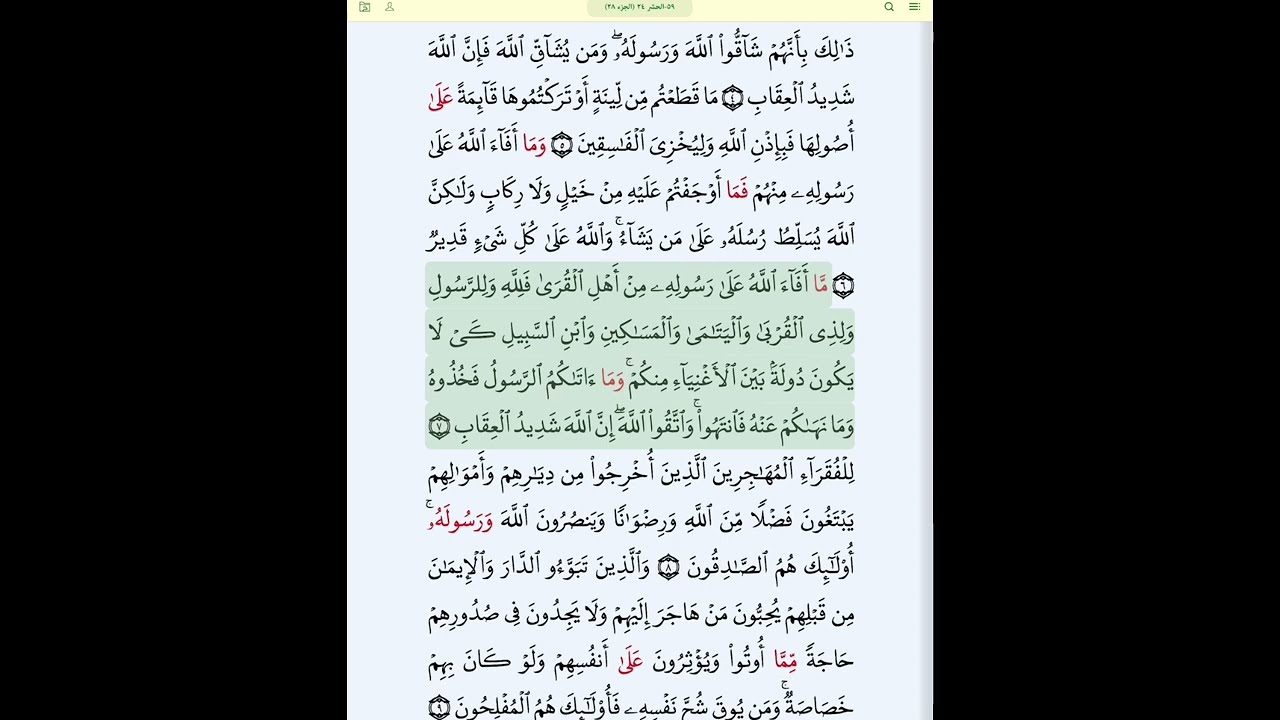 ٥٩-الحشر ٢٤ (الجزء ٢٨)
ذَٰلِكَ بِأَنَّهُمۡ شَآقُّواْ ٱللَّهَ وَرَسُولَهُۥۖ وَمَن يُشَآقِّ ٱللَّهَ فَإِنَّ ٱللَّهَ
شَدِيدُ ٱلۡعِقَابِ ٤ مَا قَطَعۡتُم مِّن لِّينَةٍ أَوۡ تَرَكۡتُمُوهَا قَآئِمَةً عَلَىٰٓ
أُصُولِهَا فَبِإِذۡنِ ٱللَّهِ وَلِيُخۡزِيَ ٱلۡفَٰسِقِينَ ٥ وَمَآ أَفَآءَ ٱللَّهُ عَلَىٰ
رَسُولِهِۦ مِنۡهُمۡ فَمَآ أَوۡجَفۡتُمۡ عَلَيۡهِ مِنۡ خَيۡلٖ وَلَا رِكَابٖ وَلَٰكِنَّ
ٱللَّهَ يُسَلِّطُ رُسُلَهُۥ عَلَىٰ مَن يَشَآءُۚ وَٱللَّهُ عَلَىٰ كُلِّ شَيۡءٖ قَدِيرٞ
٦ مَّآ أَفَآءَ ٱللَّهُ عَلَىٰ رَسُولِهِۦ مِنۡ أَهۡلِ ٱلۡقُرَىٰ فَلِلَّهِ وَلِلرَّسُولِ
وَلِذِي ٱلۡقُرۡبَىٰ وَٱلۡيَتَٰمَىٰ وَٱلۡمَسَٰكِينِ وَٱبۡنِ ٱلسَّبِيلِ كَيۡ لَا
يَكُونَ دُولَةَۢ بَيۡنَ ٱلۡأَغۡنِيَآءِ مِنكُمۡۚ وَمَآ ءَاتَىٰكُمُ ٱلرَّسُولُ فَخُذُوهُ
وَمَا نَهَىٰكُمۡ عَنۡهُ فَٱنتَهُواْۚ وَٱتَّقُواْ ٱللَّهَۖ إِنَّ ٱللَّهَ شَدِيدُ ٱلۡعِقَابِ ٧
لِلۡفُقَرَآءِ ٱلۡمُهَٰجِرِينَ ٱلَّذِينَ أُخۡرِجُواْ مِن دِيَٰرِهِمۡ وَأَمۡوَٰلِهِمۡ
يَبۡتَغُونَ فَضۡلٗا مِّنَ ٱللَّهِ وَرِضۡوَٰنٗا وَيَنصُرُونَ ٱللَّهَ وَرَسُولَهُۥٓۚ
أُوْلَٰٓئِكَ هُمُ ٱلصَّٰدِقُونَ ٨ وَٱلَّذِينَ تَبَوَّءُو ٱلدَّارَ وَٱلۡإِيمَٰنَ
مِن قَبۡلِهِمۡ يُحِبُّونَ مَنۡ هَاجَرَ إِلَيۡهِمۡ وَلَا يَجِدُونَ فِي صُدُورِهِمۡ
حَاجَةٗ مِّمَّآ أُوتُواْ وَيُؤۡثِرُونَ عَلَىٰٓ أَنفُسِهِمۡ وَلَوۡ كَانَ بِهِمۡ
خَصَاصَةٞۚ وَمَن يُوقَ شُحَّ نَفۡسِهِۦ فَأُوْلَٰٓئِكَ هُمُ ٱلۡمُفۡلِحُونَ ٩